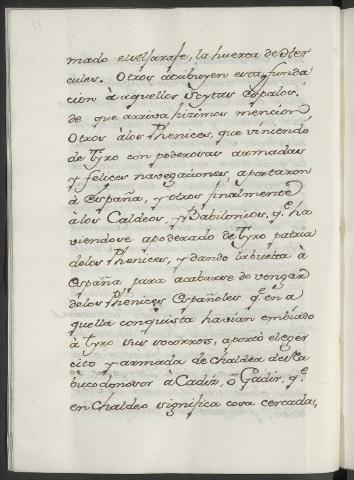 mado el Alxarafe, la huerta de Her
cules. Otros atribuyen esta funda
cion à aquellos Scytas Espalos,
de que arriva hizimos mencion
Otros àlos Phenices, que viniendo
de Tyro con poderosas armadas
y felices navegaciones, aportaron
à España, y otros finalmente
àlos Caldeos, y Babilonios, q.e ha
viendose apoderado de Tyro patria
delos Phenices, y dando labuelta à
España, para acabarse de vengar
delos Phenices Españoles q.e en a
quella conquista havian embiado
à Tyro sus socorros, aportò el eger
cito y armada de Chaldea de Na
bucodonosor à Cadiz, ò Gadir, q.e
en Chaldeo significa cosa cercada,